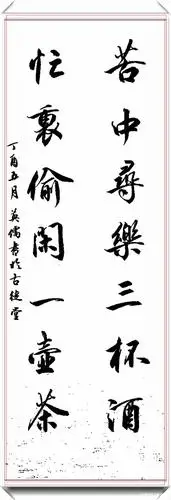 苦中尋樂三杯酒
忙裏偷閑一壺茶
丁酉五月英儒書於古德堂